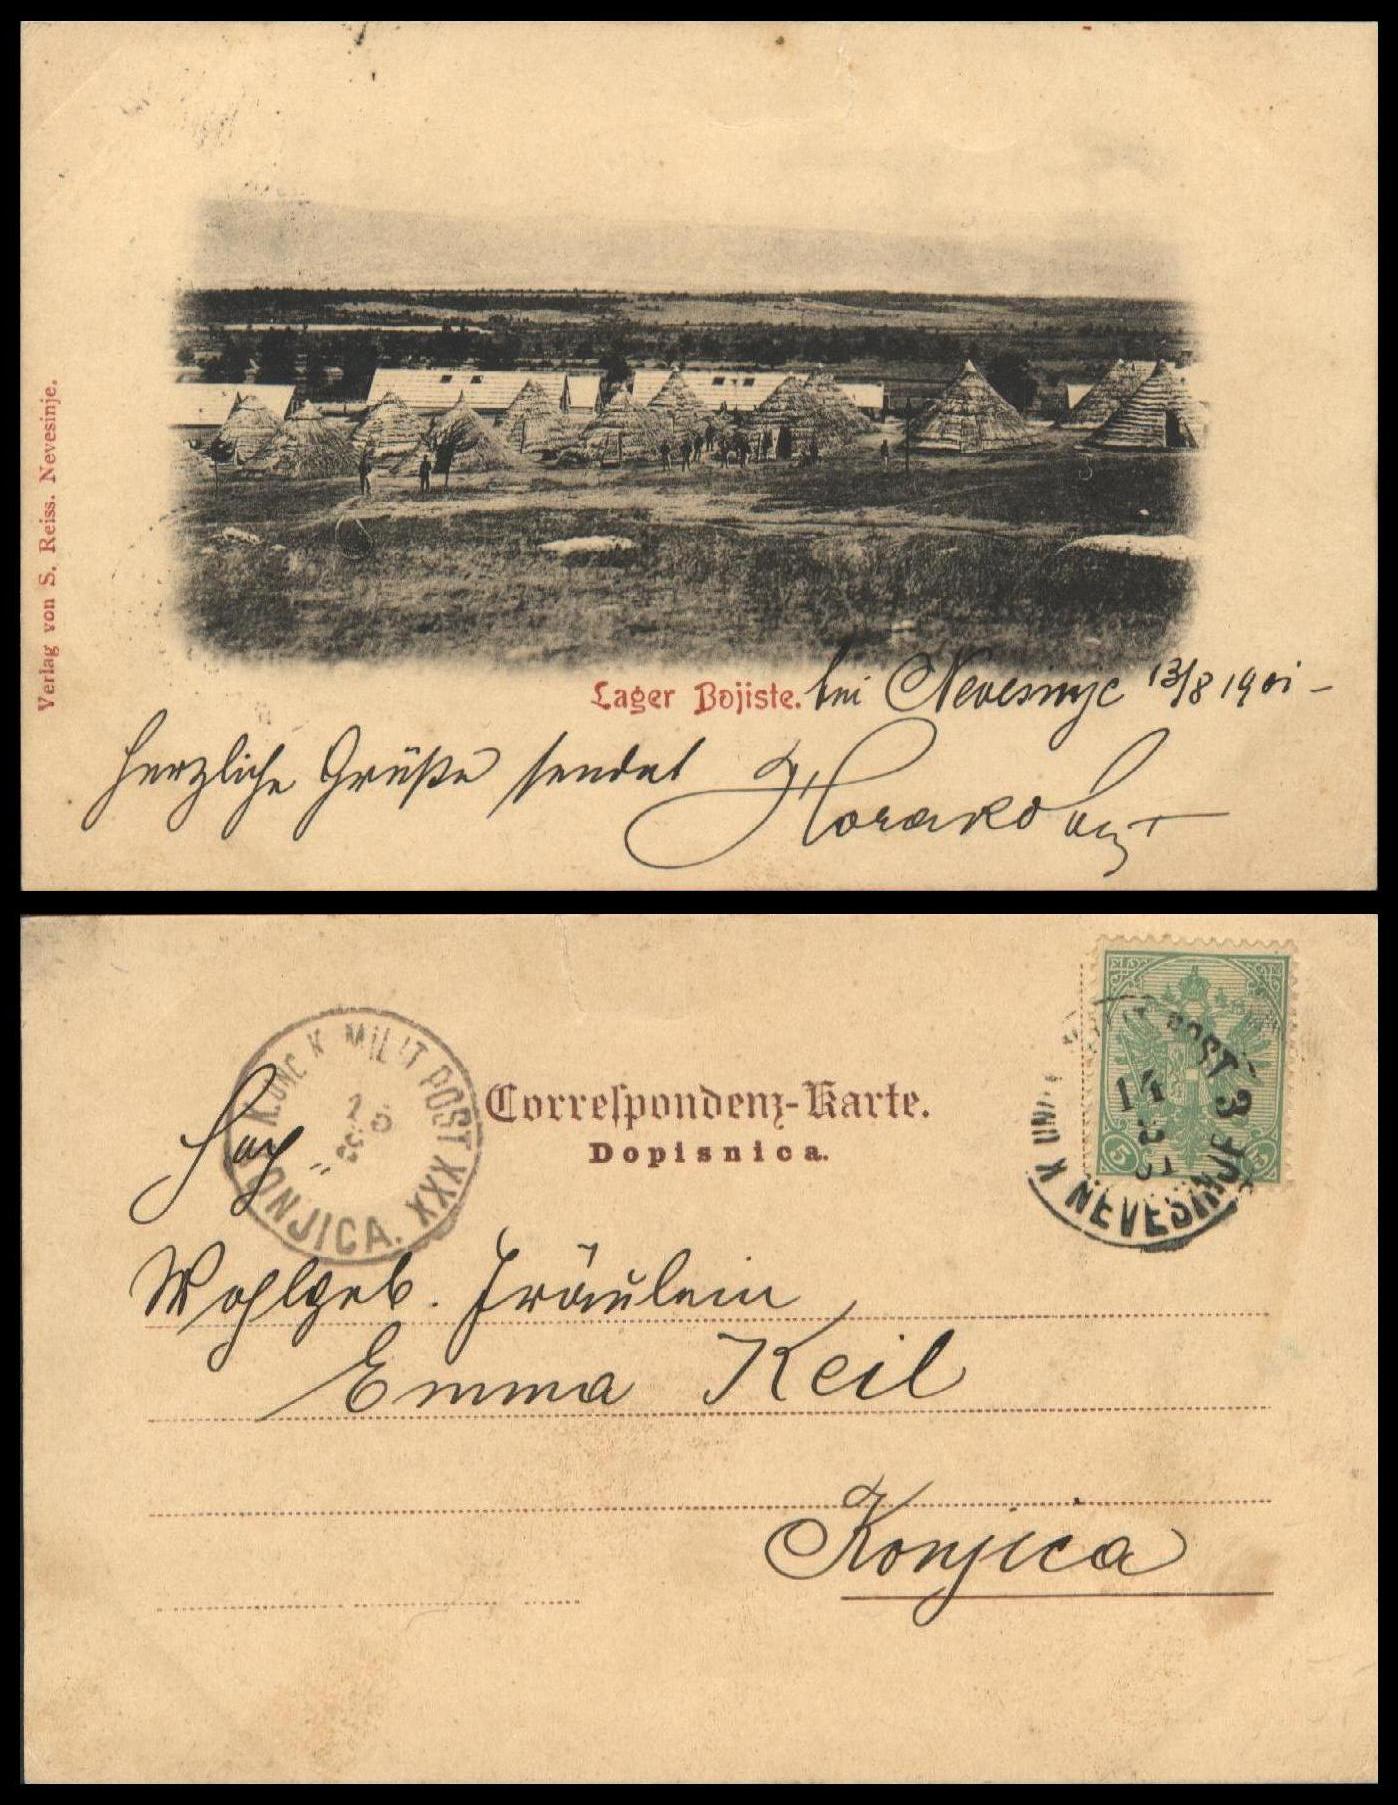 Verlag von S. Reiss. Nevesinje.
Lager Bojiste. bei Nevesinje 13/8 1901 –
Herzliche Grüße sendet
K. UND K. MILIT. POST XXX
KONJICA.
Correspondenz-Karte.
Dopisnica.
K UND POST
14
8
01
NEVESINJE
5
Wohlgeb. Fräulein
Emma Keil
Konjica